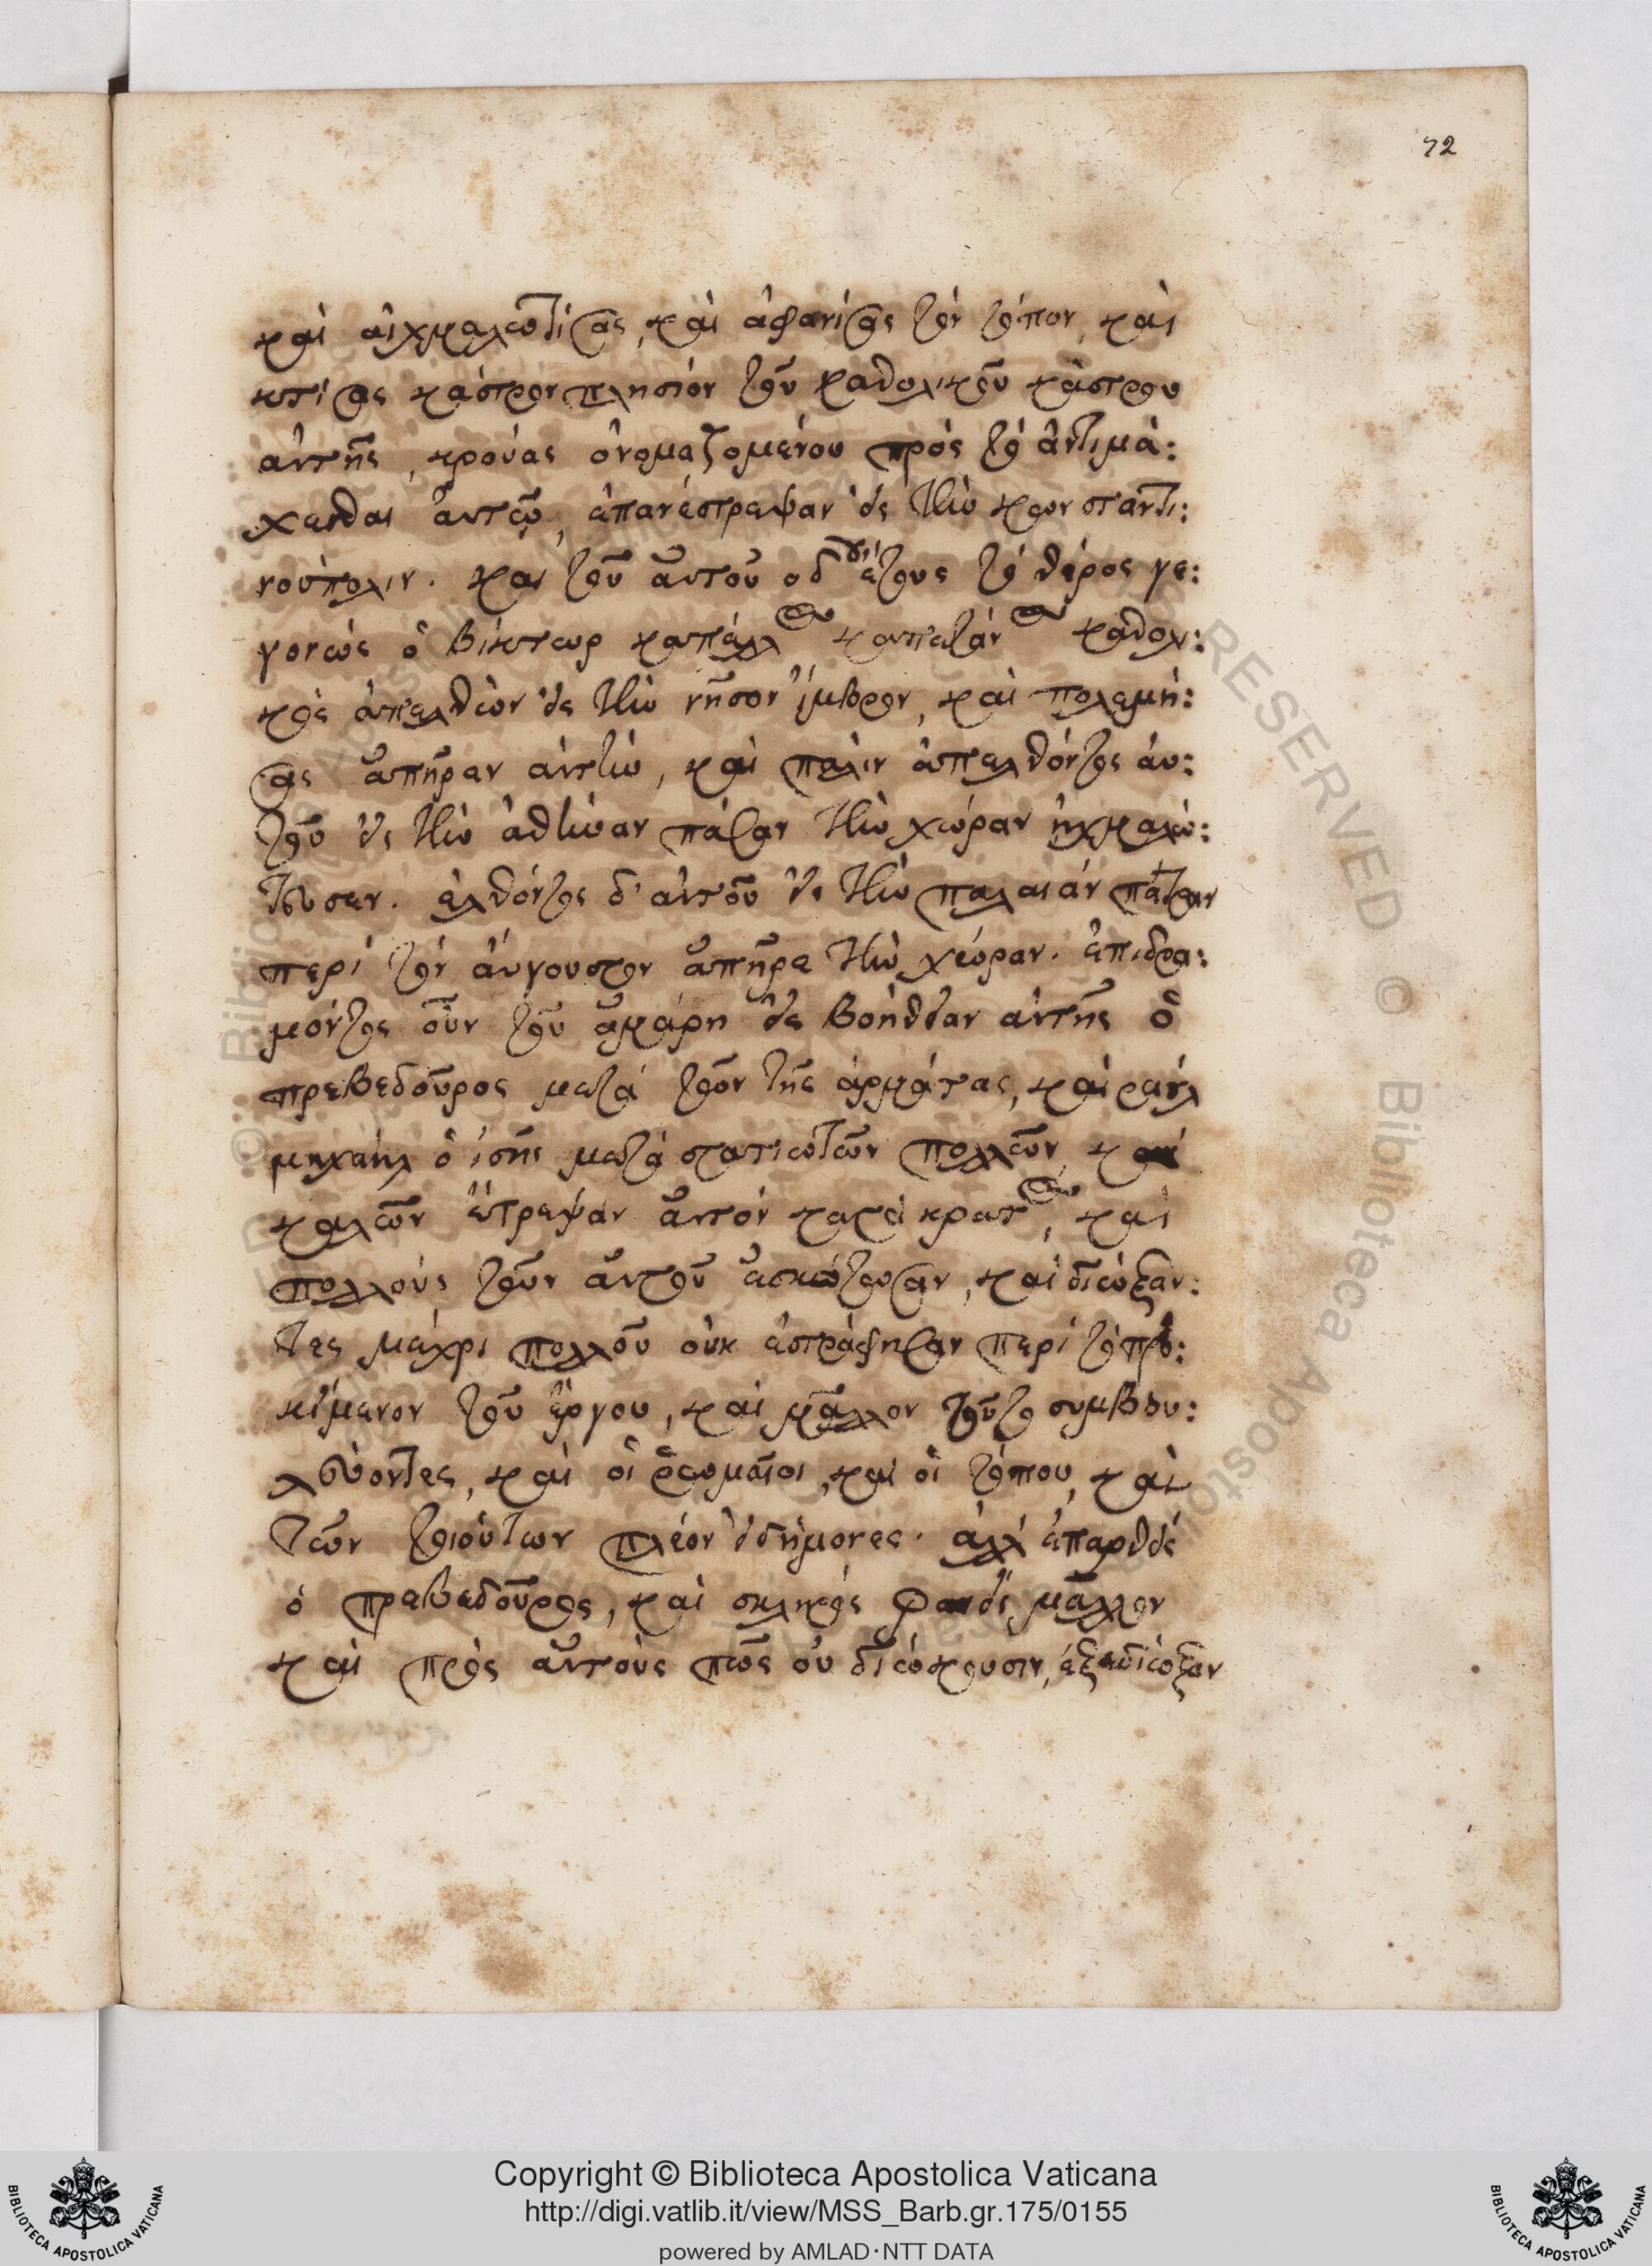 72
καὶ αἰχμαλωτίσας, καὶ ἀφανίσας τὸν τόπον, καὶ
κτίσας κάστρον πλησίον τοῦ καθολικοῦ κάστρου
ἀυτῆς, κρούας ὀνομαζομένου πρὸς τὸ ἀντιμά:
χεσθαι ἀυτῶ, ἐπανέστρεψαν εἰς τὴν κωνσταντι:
νούπολιν. καὶ τοῦ ἀυτοῦ οδ ἔτους τὸ θέρος γε:
γονὼς ὁ βίκτωρ καπέλλ καπετάν καθολι:
κὸς ἀπελθὼν εἰς τὴν νῆσον ἴμβρον, καὶ πολεμή:
σας ἀπῆραν ἀυτὴν, καὶ πάλιν ἀπελθόντος ἀυ:
τοῦ εἰς τὴν ἀθήναν πάσαν τὴν χώραν ἠχμαλώ:
τευσεν. ἐλθόντος δ' ἀυτοῦ εἰς τὴν παλαιάν πάτραν
περὶ τὸν ἀύγουστον ἀπῆρε τὴν χώραν. ἐπιδρα:
μόντος οὖν τοῦ ἀμάρη εἰς βοήθειαν ἀυτῆς ὁ
πρεβεδοῦρος μετὰ τῶν τῆς ἀρμάτας, καὶ ραούλ
μηχαήλ ὁ ἰσῆς μετὰ στατιωτῶν πολλῶν, καὶ
καλῶν ἔτρεψαν ἀυτὸν κατὰ κρατ, καὶ
πολλοὺς τῶν ἀυτοῦ ἐσκότωσαν, καὶ διώξαν:
τες μέχρι πολλοῦ οὐκ ἐστράφησαν περὶ τὸ προ:
κείμενον τοῦ ἔργου, καὶ μᾶλλον τοῦτο συμβου:
λεύοντες, καὶ οἱ ῥωμαῖοι, καὶ οἱ τόπου, καὶ
τῶν τοιούτων πλέον εἰδήμονες. ἀλλ' ἐπαρθεὶς
ὁ πρεβεδοῦρος, καὶ σκληρὸς φανεὶς μᾶλλον
καὶ πρὸς ἀυτοὺς πῶς οὐ διώκουσιν, ἐξεδίωξαν
Copyright © Biblioteca Apostolica Vaticana
http://digi.vatlib.it/view/MSS_Barb.gr.175/0155
powered by AMLAD·NTT DATA
BIBLIOTECA APOSTOLICA VATICANA
BIBLIOTECA APOSTOLICA VATICANA